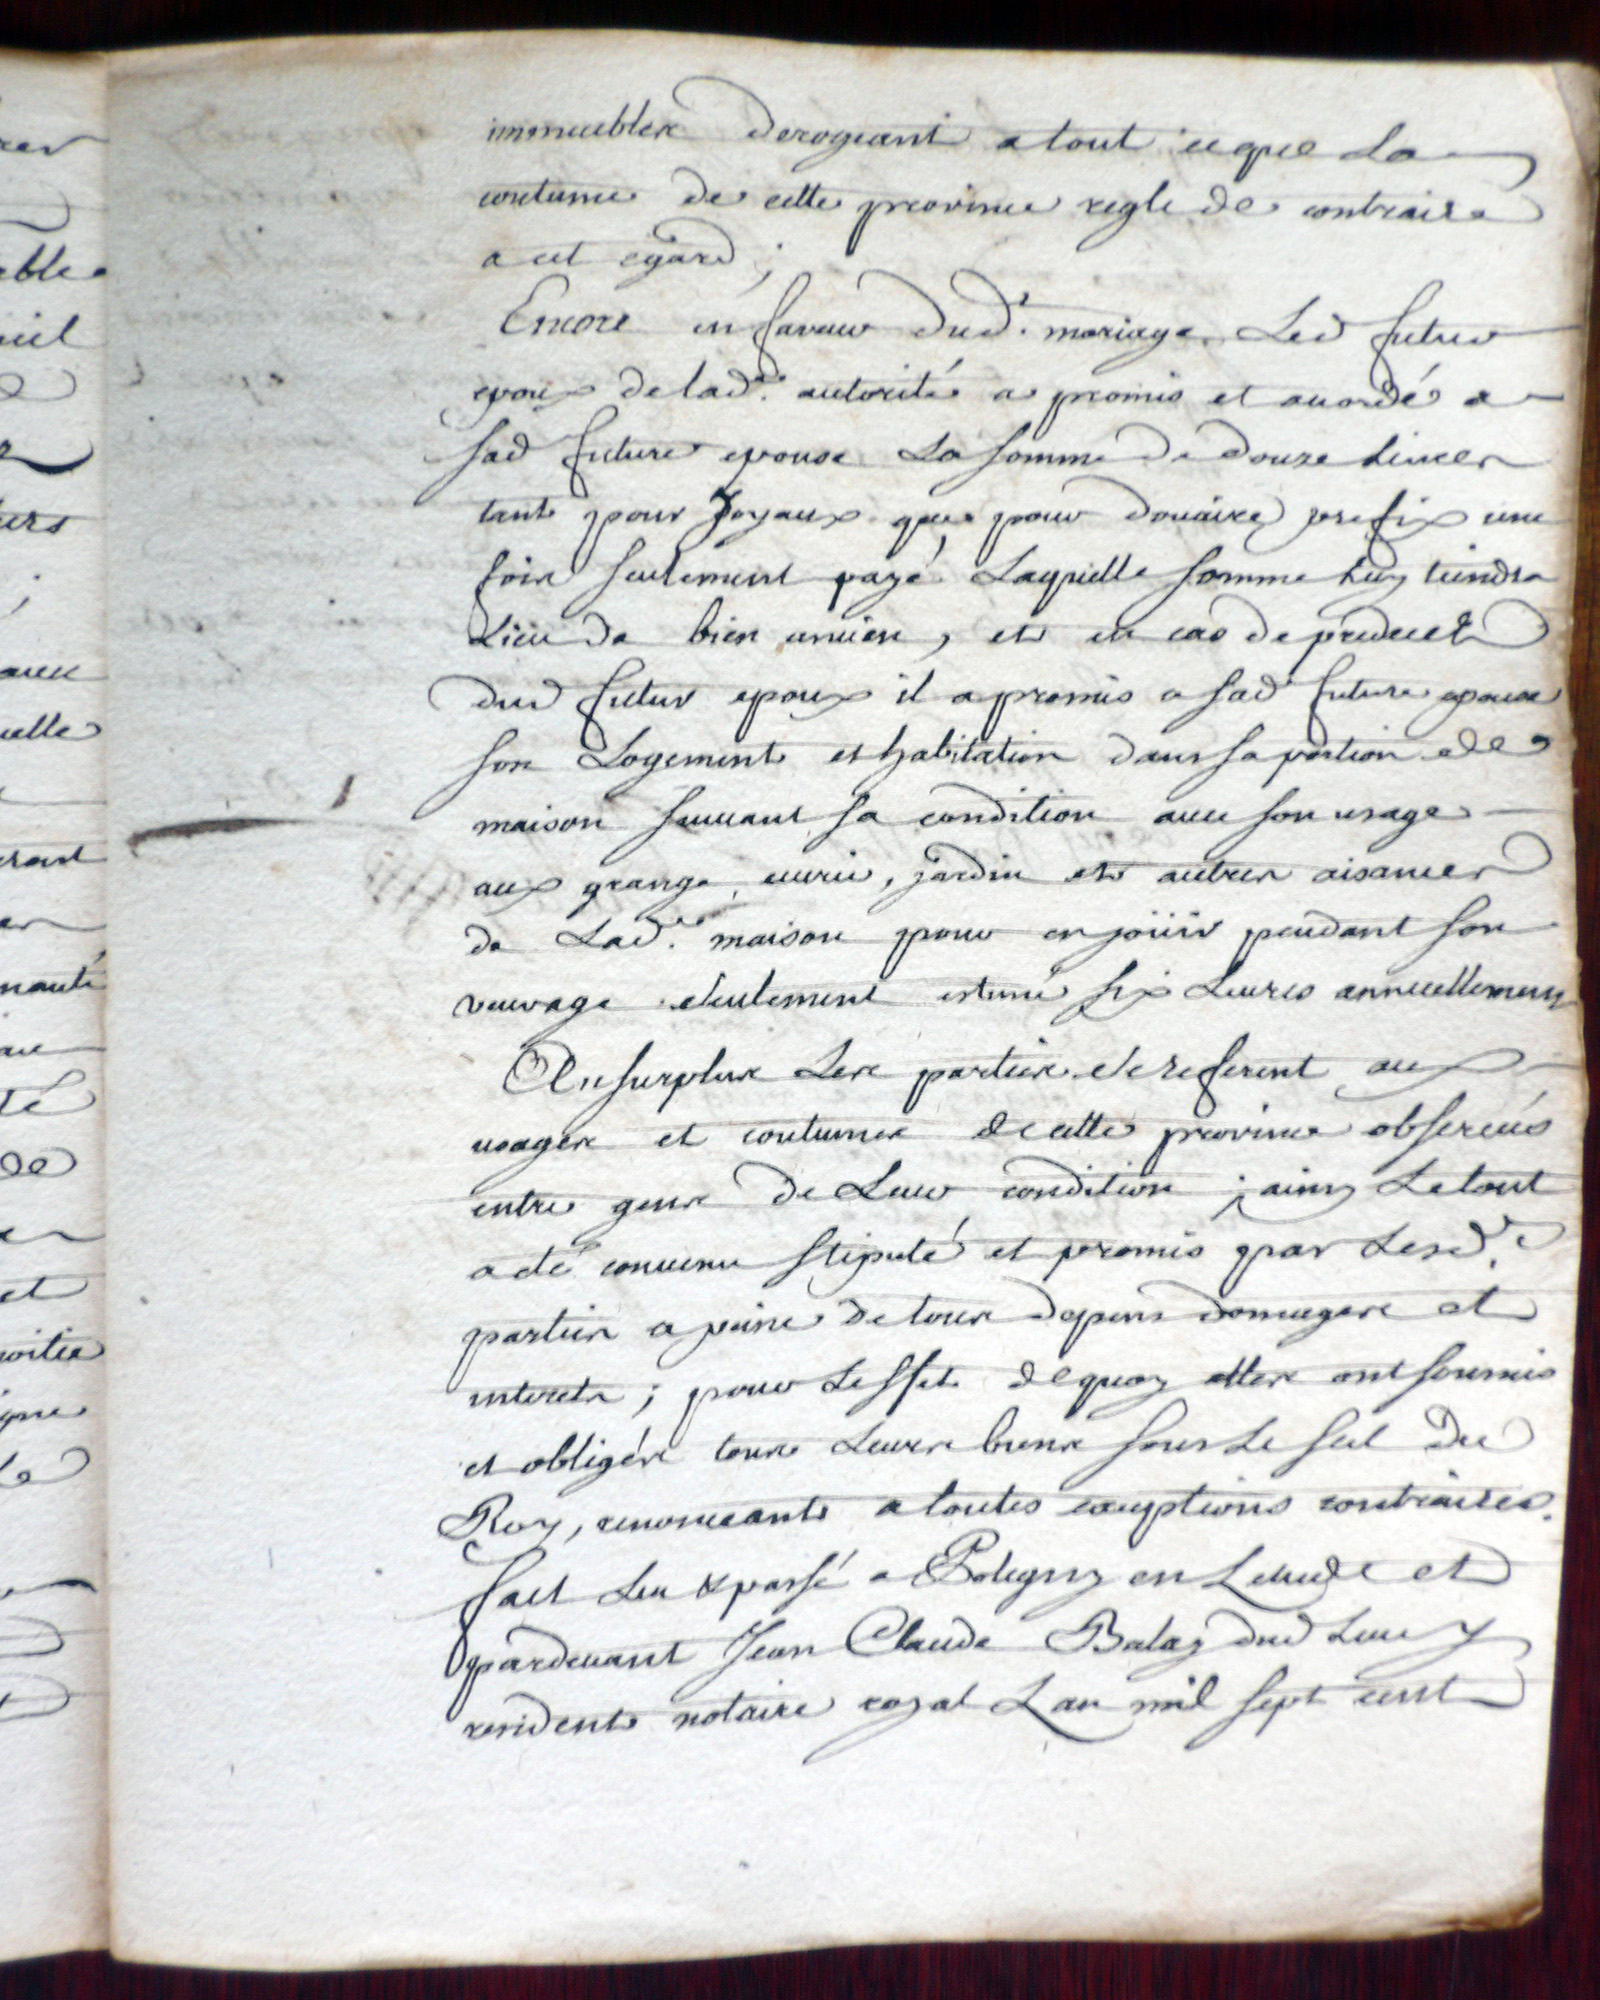 immeubles derogeant a tout ce que la
coutume de cette province regle de contraire
a cet egard ;
Encore en faveur dud.t mariage Led futur
epoux de lad.te autorité a promis et accordé a
sad future epouse La somme de douze livres
tant pour Joyaux que pour douaire prefix une
fois seulement payé Laquelle somme luy tiendra
Lieu de bien ancien, et en cas de predecet
dud futur epoux il a promis a sad future epouse
son Logement et habitation dans sa portion de
maison suivant sa condition avec son usage
aux grange, ecurie, jardin et autres aisances
de Lad.te maison pour en joüir pendant son
veuvage seulement estimé six Livres annuellement
Au surplus Les parties se referent aux
usages et coutumes de cette province observés
entre gens de Leur condition ; ainsy Le tout
a eté convenu stipulé et promis par Lesd.es
parties a peine de tous depens domages et
interets ; pour Leffet de quoy elles ont soumis
et obligés tous Leurs biens sous Le scel du
Roy, renonceants a toutes exceptions contraires.
fait Leu & passé a Poligny en Letude et
pardevant Jean Claude Balay dud Lieu y
resident notaire royal Lan mil sept cent